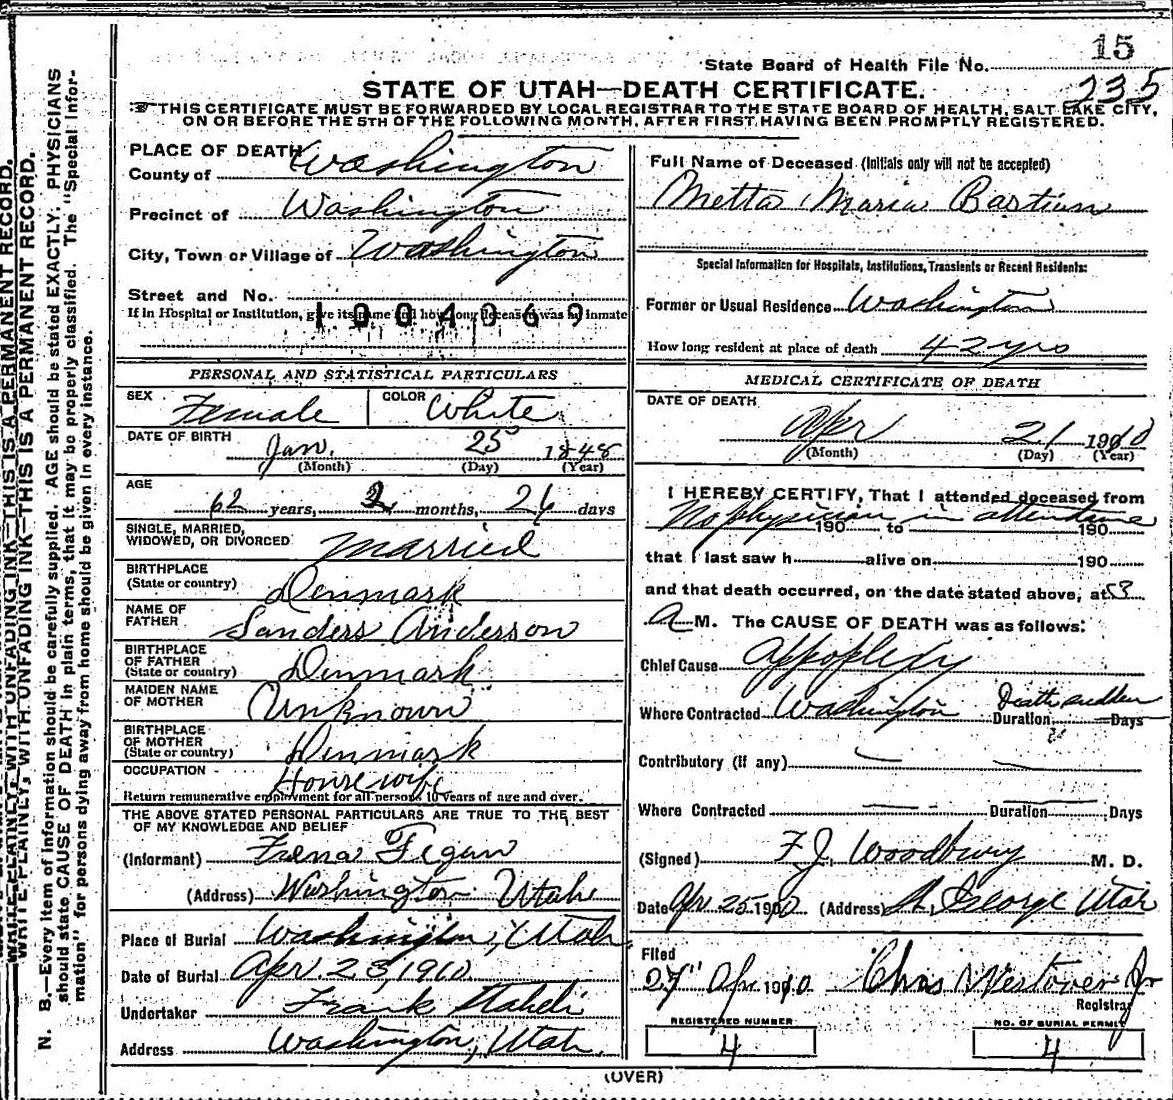 15
State Board of Health File No.
235
STATE OF UTAH—DEATH CERTIFICATE.
THIS CERTIFICATE MUST BE FORWARDED BY LOCAL REGISTRAR TO THE STATE BOARD OF HEALTH, SALT LAKE CITY,
ON OR BEFORE THE 5TH OF THE FOLLOWING MONTH, AFTER FIRST HAVING BEEN PROMPTLY REGISTERED.
PLACE OF DEATH
County of Washington
Precinct of Washington
City, Town or Village of Washington
Street and No.
If in Hospital or Institution, give its name and how long deceased was an inmate
1004069
PERSONAL AND STATISTICAL PARTICULARS
SEX Female COLOR White
DATE OF BIRTH Jan. 25 1848
(Month) (Day) (Year)
AGE
62 years, 2 months, 26 days
SINGLE, MARRIED,
WIDOWED, OR DIVORCED Married
BIRTHPLACE
(State or country) Denmark
NAME OF
FATHER Sanders Anderson
BIRTHPLACE
OF FATHER
(State or country) Denmark
MAIDEN NAME
OF MOTHER Unknown
BIRTHPLACE
OF MOTHER
(State or country) Denmark
OCCUPATION Housewife
Return remunerative employment for all persons 10 years of age and over.
THE ABOVE STATED PERSONAL PARTICULARS ARE TRUE TO THE BEST
OF MY KNOWLEDGE AND BELIEF
(Informant)
(Address) Washington Utah
Place of Burial Washington, Utah
Date of Burial Apr. 23, 1910
Undertaker Frank Staheli
Address Washington, Utah.
Full Name of Deceased (Initials only will not be accepted)
Metta Maria Bastian
Special Information for Hospitals, Institutions, Transients or Recent Residents:
Former or Usual Residence Washington
How long resident at place of death 42 yrs
MEDICAL CERTIFICATE OF DEATH
DATE OF DEATH
Apr 21 1910
(Month) (Day) (Year)
I HEREBY CERTIFY, That I attended deceased from
No physician in attendance 190 to 190
that I last saw h alive on 190
and that death occurred, on the date stated above, at 3
A M. The CAUSE OF DEATH was as follows:
Chief Cause Appoplexy
Where Contracted Washington Duration Death sudden Days
Contributory (if any)
Where Contracted Duration Days
(Signed) F. J. Woodbury M. D.
Date Apr 25 1910 (Address) St. George Utah
Filed
27" Apr 1910 Chas Westover Jr
Registrar
REGISTERED NUMBER
4
NO. OF BURIAL PERMIT
4
(OVER)
WRITE PLAINLY, WITH UNFADING INK—THIS IS A PERMANENT RECORD.
WRITE PLAINLY, WITH UNFADING INK—THIS IS A PERMANENT RECORD.
N. B.—Every item of information should be carefully supplied. AGE should be stated EXACTLY. PHYSICIANS
should state CAUSE OF DEATH in plain terms, that it may be properly classified. The "Special Infor-
mation" for persons dying away from home should be given in every instance.